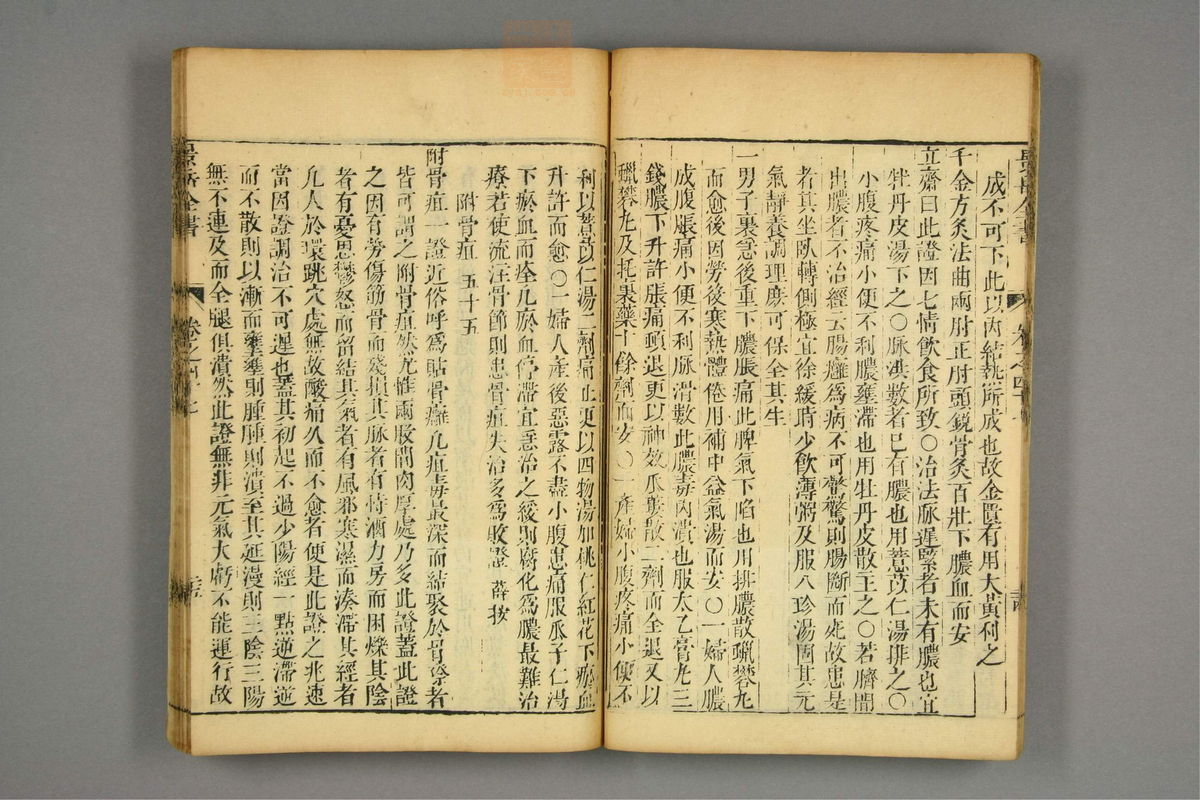 景岳全書 卷之四十七
成不可下此以內結熱所成也故金匱有用大黃利之
千金方灸法曲兩肘正肘頭銳骨灸百壯下膿血而安
立齋曰此證因七情飲食所致○治法脉遲緊者未有膿也宜
牡丹皮湯下之○脉洪數者已有膿也用薏苡仁湯排之○
小腹疼痛小便不利膿壅滯也用牡丹皮散主之○若臍間
出膿者不治經云腸癰爲病不可驚驚則腸斷而死故患是
者其坐臥轉側極宜徐緩時少飲薄粥及服八珍湯固其元
氣靜養調理庶可保全其生
一男子裏急後重下膿脹痛此脾氣下陷也用排膿散蠟礬丸
而愈後因勞後寒熱體倦用補中益氣湯而安○一婦人膿
成腹脹痛小便不利脉滑數此膿毒內潰也服太乙膏丸三
錢膿下升許脹痛頓退更以神效瓜蔞散二劑而全退又以
蠟礬丸及托裏藥十餘劑而安○一產婦小腹疼痛小便不
利以薏苡仁湯二劑痛止更以四物湯加桃仁紅花下瘀血
升許而愈○一婦人產後惡露不盡小腹患痛服瓜子仁湯
下瘀血而痊凡瘀血停滯宜急治之緩則腐化爲膿最難治
療若使流注骨節則患骨疽失治多爲敗證 薛按
附骨疽 五十五
附骨疽一證近俗呼爲貼骨癰凡疽毒最深而結聚於骨際者
皆可謂之附骨疽然尤惟兩股間肉厚處乃多此證蓋此證
之因有勞傷筋骨而殘損其脉者有恃酒力房而困爍其陰
者有憂思鬱怒而留結其氣者有風邪寒濕而湊滯其經者
凡人於環跳穴處無故酸痛久而不愈者便是此證之兆速
當因證調治不可遲也蓋其初起不過少陽經一點逆滯逆
而不散則以漸而壅壅則腫腫則潰至其延漫則三陰三陽
無不連及而全腿俱潰然此證無非元氣大虧不能運行故
景岳全書 卷之四十七